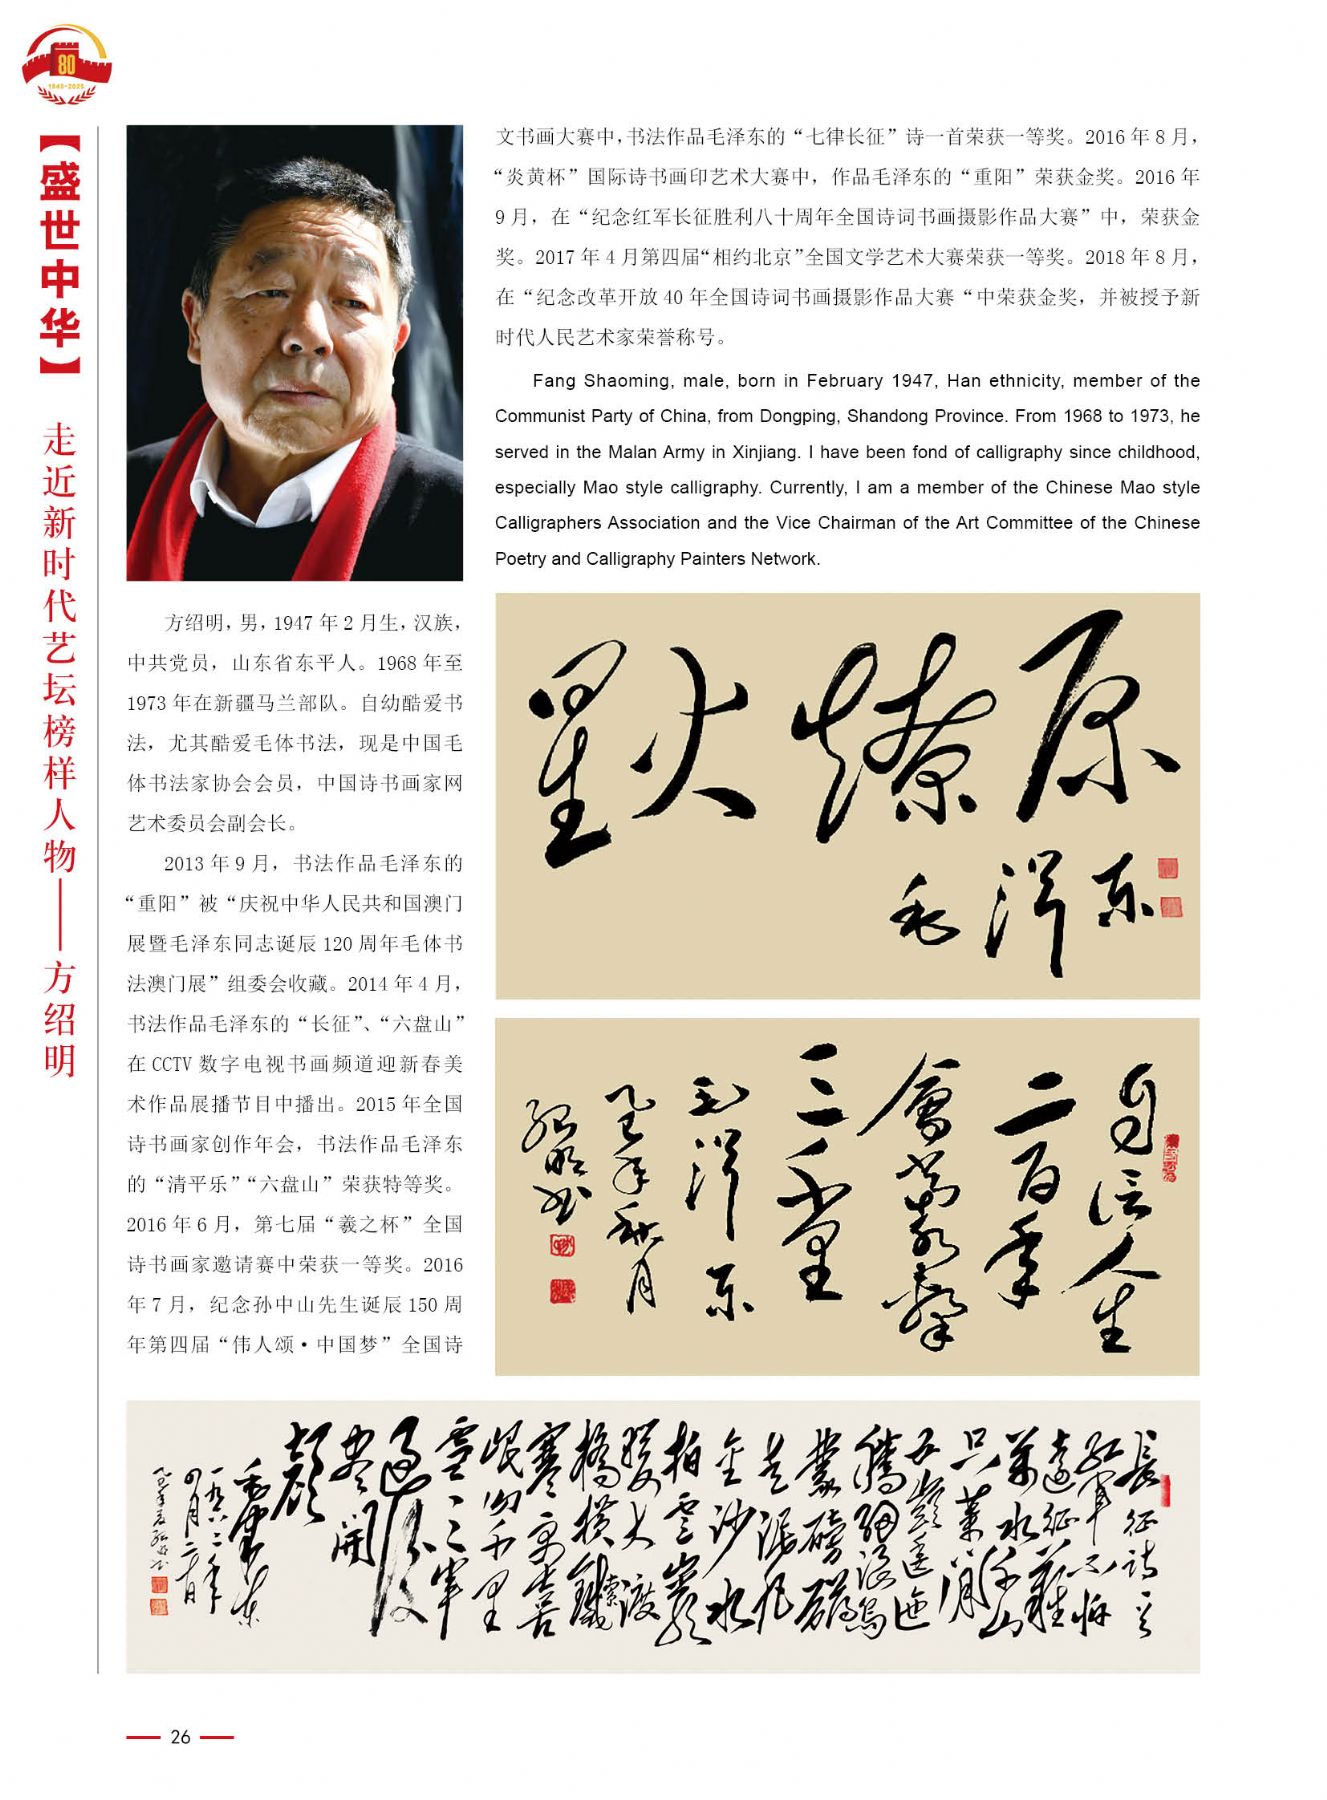 80
1945-2025
【盛世中华】
走近新时代艺坛榜样人物——方绍明
方绍明，男，1947 年 2 月生，汉族，
中共党员，山东省东平人。1968 年至
1973 年在新疆马兰部队。自幼酷爱书
法，尤其酷爱毛体书法，现是中国毛
体书法家协会会员，中国诗书画家网
艺术委员会副会长。
2013 年 9 月，书法作品毛泽东的
“重阳”被“庆祝中华人民共和国澳门
展暨毛泽东同志诞辰 120 周年毛体书
法澳门展”组委会收藏。2014 年 4 月，
书法作品毛泽东的“长征”、“六盘山”
在 CCTV 数字电视书画频道迎新春美
术作品展播节目中播出。2015 年全国
诗书画家创作年会，书法作品毛泽东
的“清平乐”“六盘山”荣获特等奖。
2016 年 6 月，第七届“羲之杯”全国
诗书画家邀请赛中荣获一等奖。2016
年 7 月，纪念孙中山先生诞辰 150 周
年第四届“伟人颂·中国梦”全国诗
文书画大赛中，书法作品毛泽东的“七律长征”诗一首荣获一等奖。2016 年 8 月，
“炎黄杯”国际诗书画印艺术大赛中，作品毛泽东的“重阳”荣获金奖。2016 年
9 月，在“纪念红军长征胜利八十周年全国诗词书画摄影作品大赛”中，荣获金
奖。2017 年 4 月第四届“相约北京”全国文学艺术大赛荣获一等奖。2018 年 8 月，
在“纪念改革开放 40 年全国诗词书画摄影作品大赛“中荣获金奖，并被授予新
时代人民艺术家荣誉称号。
Fang Shaoming, male, born in February 1947, Han ethnicity, member of the
Communist Party of China, from Dongping, Shandong Province. From 1968 to 1973, he
served in the Malan Army in Xinjiang. I have been fond of calligraphy since childhood,
especially Mao style calligraphy. Currently, I am a member of the Chinese Mao style
Calligraphers Association and the Vice Chairman of the Art Committee of the Chinese
Poetry and Calligraphy Painters Network.
星火燎原
毛泽东
自信人生
二百年
会当水击
三千里
毛泽东
乙巳年秋月
绍明书
长征诗一首
红军不怕
远征难
万水千山
只等闲
五岭逶迤
腾细浪乌
蒙磅礴
走泥丸
金沙水
拍云崖
暖大渡
桥横铁索
寒更喜
岷山千里
雪三军
过后
尽开
颜
毛泽东
一九六二年
四月二十日
26